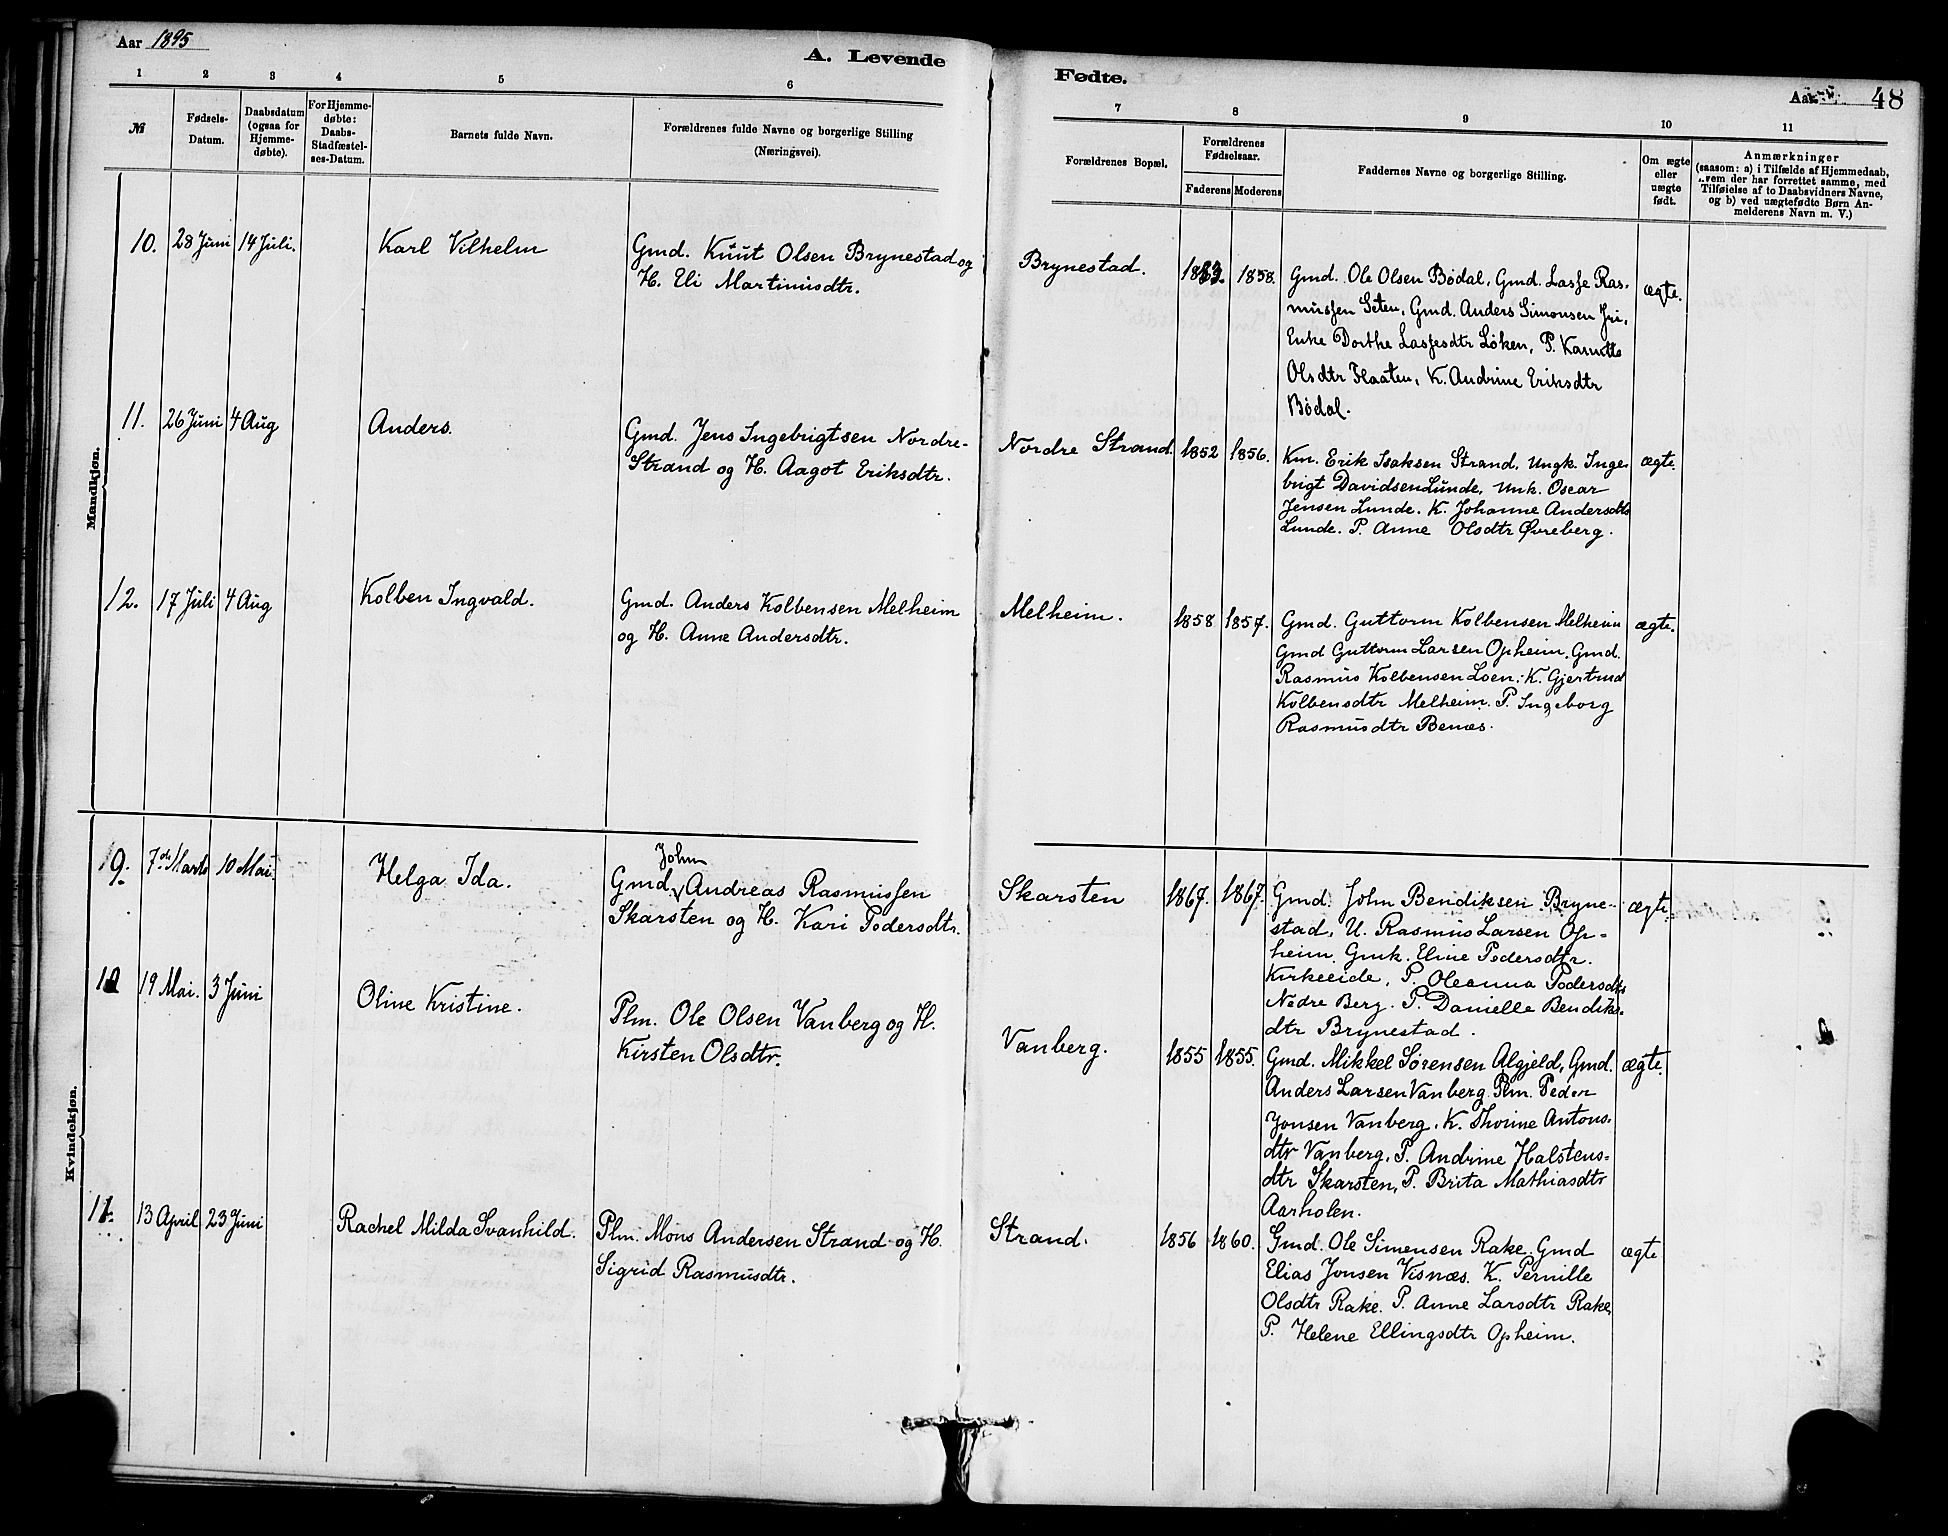 Aar 1895
A. Levende Fødte.
Aar 48
1 2 3 4 5 6 7 8 9 10 11
№
Fødsels-
Datum.
Daabsdatum
(ogsaa for
Hjemme-
døbte).
For Hjemme-
døbte:
Daabs-
Stadfæstel-
ses-Datum.
Barnets fulde Navn.
Forældrenes fulde Navne og borgerlige Stilling
(Næringsvei).
Forældrenes Bopæl.
Forældrenes
Fødselsaar.
Faderens Moderens
Faddernes Navne og borgerlige Stilling.
Om ægte
eller
uægte
født.
Anmærkninger
(saasom: a) i Tilfælde af Hjemmedaab,
hvem der har forrettet samme, med
Tilføielse af to Daabsvidners Navne,
og b) ved uægtefødte Børn An-
melderens Navn m. V.)
Mandkjøn.
10. 28 Juni 14 Juli. Karl Vilhelm
Gmd. Knut Olsen Brynestad og
H. Eli Martinusdtr.
Brynestad. 1858.
Gmd. Ole Olsen Bødal, Gmd. Lasse Ras-
mussen Seten, Gmd. Anders Simonsen Fri,
Enke Dorthe Lassesdtr Løken, P.
Olsdtr Haaten, K. Andrine Eriksdtr
Bødal.
ægte.
11. 26 Juni 4 Aug Anders.
Gmd. Jens Ingebrigtsen Nordre-
Strand og H. Aagot Eriksdtr.
Nordre Strand. 1852 1856.
Km. Erik Isaksen Strand, Ungk. Inge-
brigt Davidsen Lunde, Unk. Oscar
Jensen Lunde. K. Johanne Andersdtr
Lunde. P. Anne Olsdtr Øvreberg.
ægte.
12. 17 Juli 4 Aug Kolben Ingvald.
Gmd. Anders Kolbensen Melheim
og H. Anne Andersdtr.
Melheim. 1858 1857.
Gmd. Guttorm Kolbensen Melheim
Gmd Guttorm Larsen Opheim, Gmd.
Rasmus Kolbensen Loen: K. Gjertrud
Kolbensdtr Melheim. P. Ingeborg
Rasmusdtr Benæs.
ægte.
Kvindekjøn.
9. 7de Marts 10 Mai. Helga Ida.
John
Gmd. Andreas Rasmussen
Skarsten og H. Kari Pedersdtr.
Skarsten 1867. 1867.
Gmd. John Bendiksen Bryne-
stad, U. Rasmus Larsen Op-
heim, Gmk. Eline Pedersdtr.
Kirkeeide, P. Oleanna Pedersdtr
Nedre Berg. P. Danielle Bendiks-
dtr Brynestad.
ægte.
10 19 Mai. 3 Juni Oline Kristine.
Plm. Ole Olsen Vanberg og H.
Kirsten Olsdtr.
Vanberg. 1855 1855.
Gmd. Mikkel Sørensen Algjeld, Gmd.
Anders Larsen Vanberg. Plm. Peder
Jonsen Vanberg. K. Thorine Antons-
dtr Vanberg, P. Andrine Halstens-
dtr Skarsten, P. Brita Mathiasdtr
Aarholen.
ægte.
11. 13 April 23 Juni Rachel Milda Svanhild.
Plm. Mons Andersen Strand og H.
Sigrid Rasmusdtr.
Strand. 1856 1860.
Gmd. Ole Simensen Rake. Gmd
Elias Jonsen Visnæs. K. Pernille
Olsdtr Rake. P. Anne Larsdtr Rake,
P. Helene Ellingsdtr Opheim.
ægte